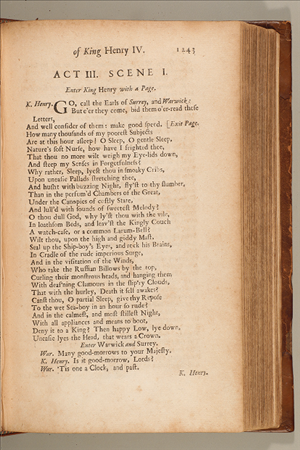 of King Henry IV. 1243
ACT III. SCENE I.
Enter King Henry with a Page.
K. Henry. GO, call the Earls of Surrey, and Warwick:
But e'er they come, bid them o'er-read these
Letters,
And well consider of them: make good speed. [Exit Page.
How many thousands of my poorest Subjects
Are at this hour asleep! O Sleep, O gentle Sleep,
Nature's soft Nurse, how have I frighted thee,
That thou no more wilt weigh my Eye-lids down,
And steep my Senses in Forgetfulness?
Why rather, Sleep, lyest thou in smoaky Cribs,
Upon uneasie Pallads stretching thee,
And husht with buzzing Night, fly'st to thy slumber,
Than in the perfum'd Chambers of the Great,
Under the Canopies of costly State,
And lull'd with sounds of sweetest Melody?
O thou dull God, why ly'st thou with the vile,
In loathsom Beds, and leav'st the Kingly Couch
A watch-case, or a common Larum-Bell?
Wilt thou, upon the high and giddy Mast,
Seal up the Ship-boy's Eyes, and rock his Brains,
In Cradle of the rude imperious Surge,
And in the visitation of the Winds,
Who take the Ruffian Billows by the top,
Curling their monstrous heads, and hanging them
With deaf'ning Clamours in the slip'ry Clouds,
That with the hurley, Death it self awakes?
Canst thou, O partial Sleep, give thy Repose
To the wet Sea-boy in an hour so rude?
And in the calmest, and most stillest Night,
With all appliances and means to boot,
Deny it to a King? Then happy Low, lye down,
Uneasie lyes the Head, that wears a Crown.
Enter Warwick and Surrey.
War. Many good-morrows to your Majesty.
K. Henry. Is it good-morrow, Lords?
War. 'Tis one a Clock, and past.
K. Henry.